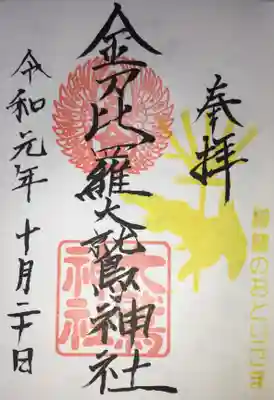 奉拝
横濱のおとりさま
金刀比羅大鷲神社
大鷲
神社
令和元年十月二十日